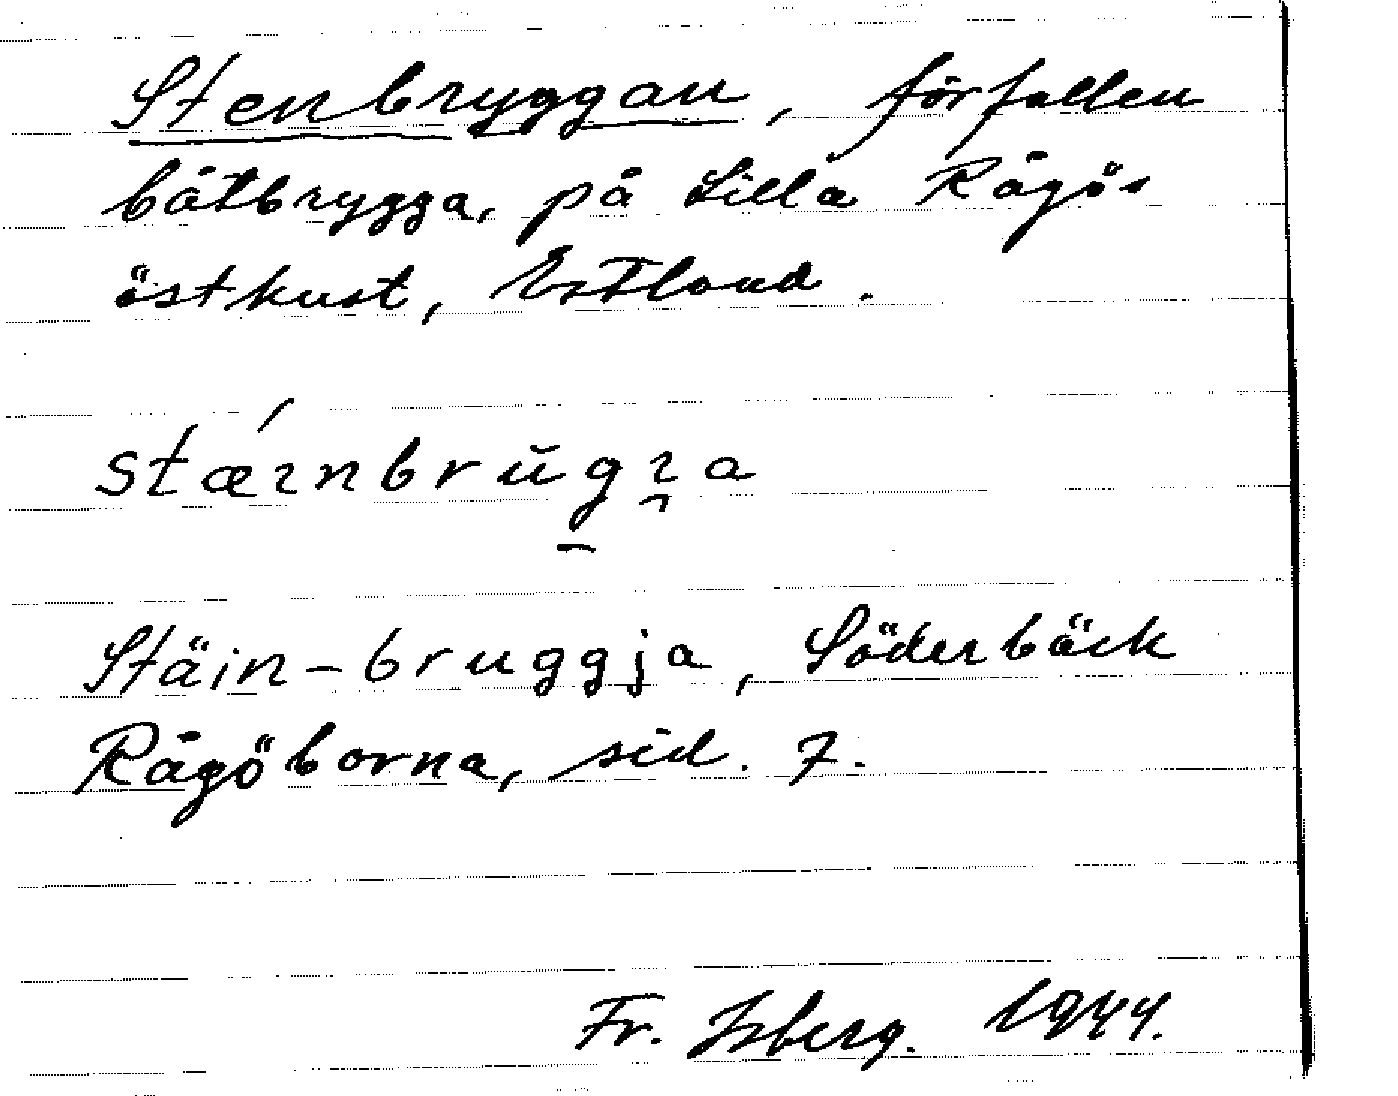 Stenbryggan, förfallen
båtbrygga, på Lilla Rågös
östkust, Estland.
stǽɪnbrŭg̱ɪ̯a
Stäin-bruggja, Söderbäck
Rågöborna, sid. 7.
Fr. Isberg. 1944.